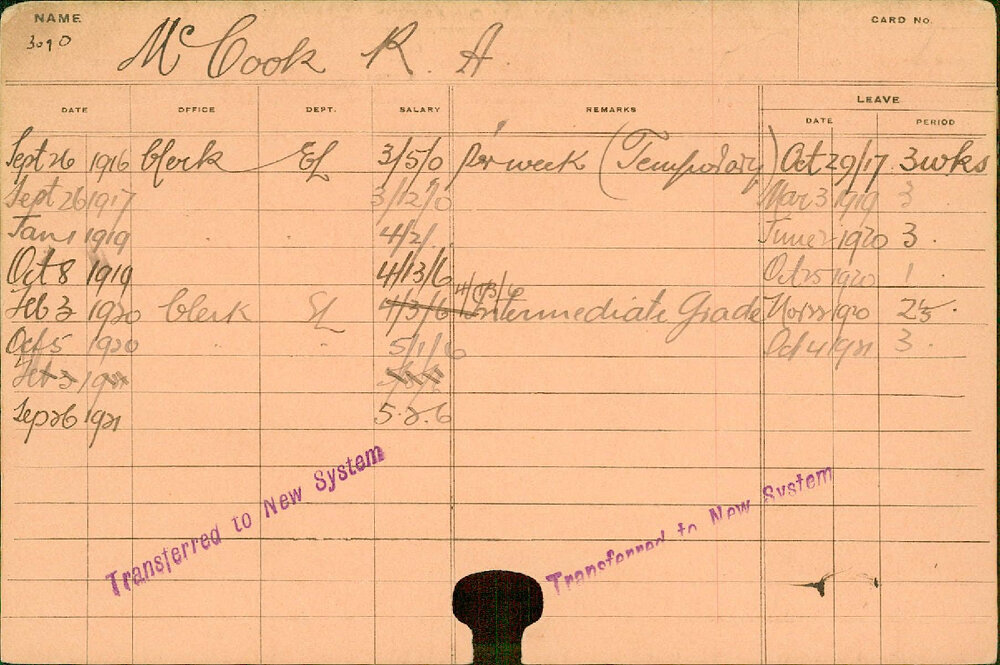 NAME
CARD No.
3090
Mc Cook R. A.
DATE OFFICE DEPT. SALARY REMARKS LEAVE
DATE PERIOD
Sept 26 1916 Clerk EL 3/5/0 per week (Temporary) Oct 29/17. 3 wks
Sept 26 1917 3/12/0 Mar 3 1919 3
Jan 1 1919 4/2/. June 2 1920 3.
Oct 8 1919 4/13/6 Oct 25 1920 1
4/13/6
Feb 3 1920 Clerk EL 4/3/6 Intermediate Grade Nov 22 1920
Oct 5 1920 5/1/6 Oct 4 1921 3.
Feb 3
Sep 26 1921 5.2.6
Transferred to New System
Transferred to New System